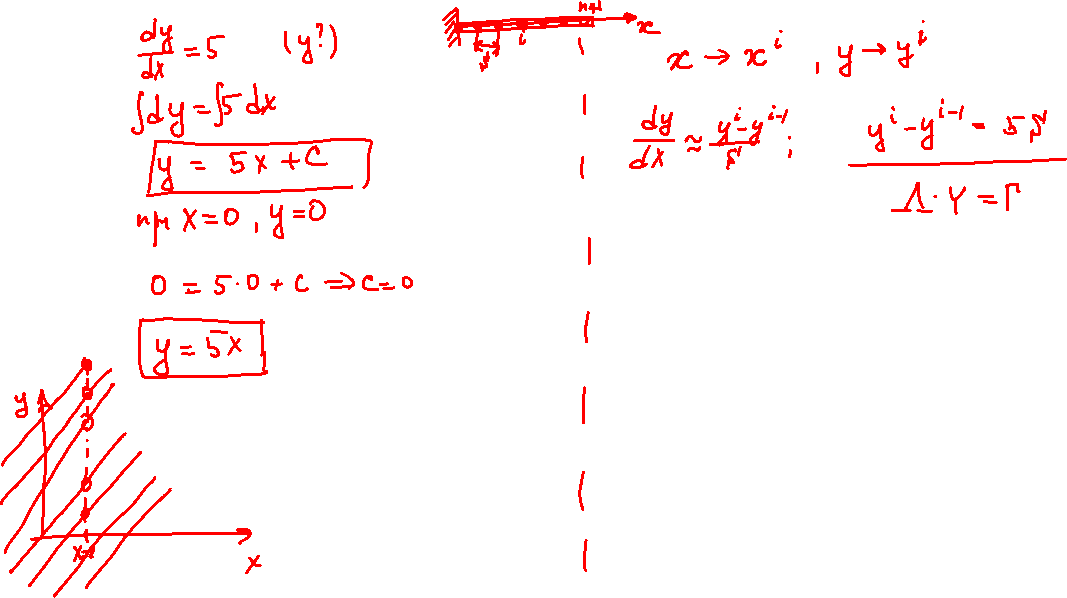 dy/dx = 5 (y?)
∫dy = ∫5 dx
y = 5x + C
при x = 0, y = 0
0 = 5·0 + C ⇒ C = 0
y = 5x
y
x
n+1
x
i
x → xⁱ, y → yⁱ
dy/dx ≈ (yⁱ - yⁱ⁻¹)/S;
yⁱ - yⁱ⁻¹ = 5S
Λ·Y = Γ